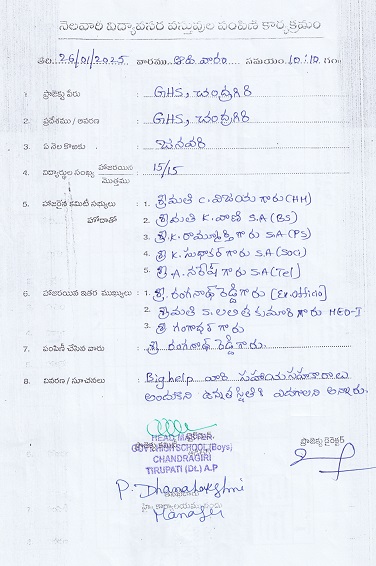 నెలవారీ విద్యావసర వస్తువుల పంపిణీ కార్యక్రమం
తేది: 26/01/2025 వారము ఆది వారం సమయం 10:10 గం
1. ప్రాజెక్టు పేరు : GHS, చంద్రగిరి
2. ప్రదేశము / ఆవరణ : GHS, చంద్రగిరి
3. ఏ నెల కొఱకు : జనవరి
4. విద్యార్థుల సంఖ్య హాజరయిన మొత్తము : 15/15
5. హాజరైన కమిటీ సభ్యులు హోదాతో : 1. శ్రీమతి C. విజయ గారు (HM)
2. శ్రీమతి K. వాణి S.A (BS)
3. శ్రీ. K. రామ్మూర్తి గారు S.A (PS)
4. శ్రీ K. సుధాకర్ గారు S.A (Soc)
5. శ్రీ. A. సురేష్ గారు S.A (Tel)
6. హాజరయిన ఇతర ముఖ్యులు : 1. శ్రీ. రంగనాథ్ రెడ్డి గారు [Ex.Officio]
2. శ్రీమతి S. లలిత కుమారి గారు MEO-I
3. శ్రీ గంగాధర్ గారు
7. పంపిణీ చేసిన వారు : శ్రీ రంగనాథ్ రెడ్డి గారు.
8. వివరణ / సూచనలు : Bighelp వారి సహాయ సహకారాలు
అందుకుని ఉన్నత స్థితికి ఎదగాలని అన్నారు.
ప్రాజెక్టు డైరెక్టర్
HEAD MASTER
GOVT HIGH SCHOOL (Boys)
CHANDRAGIRI
TIRUPATI (Dt.) A.P
P. Dhanalakshmi
Manager